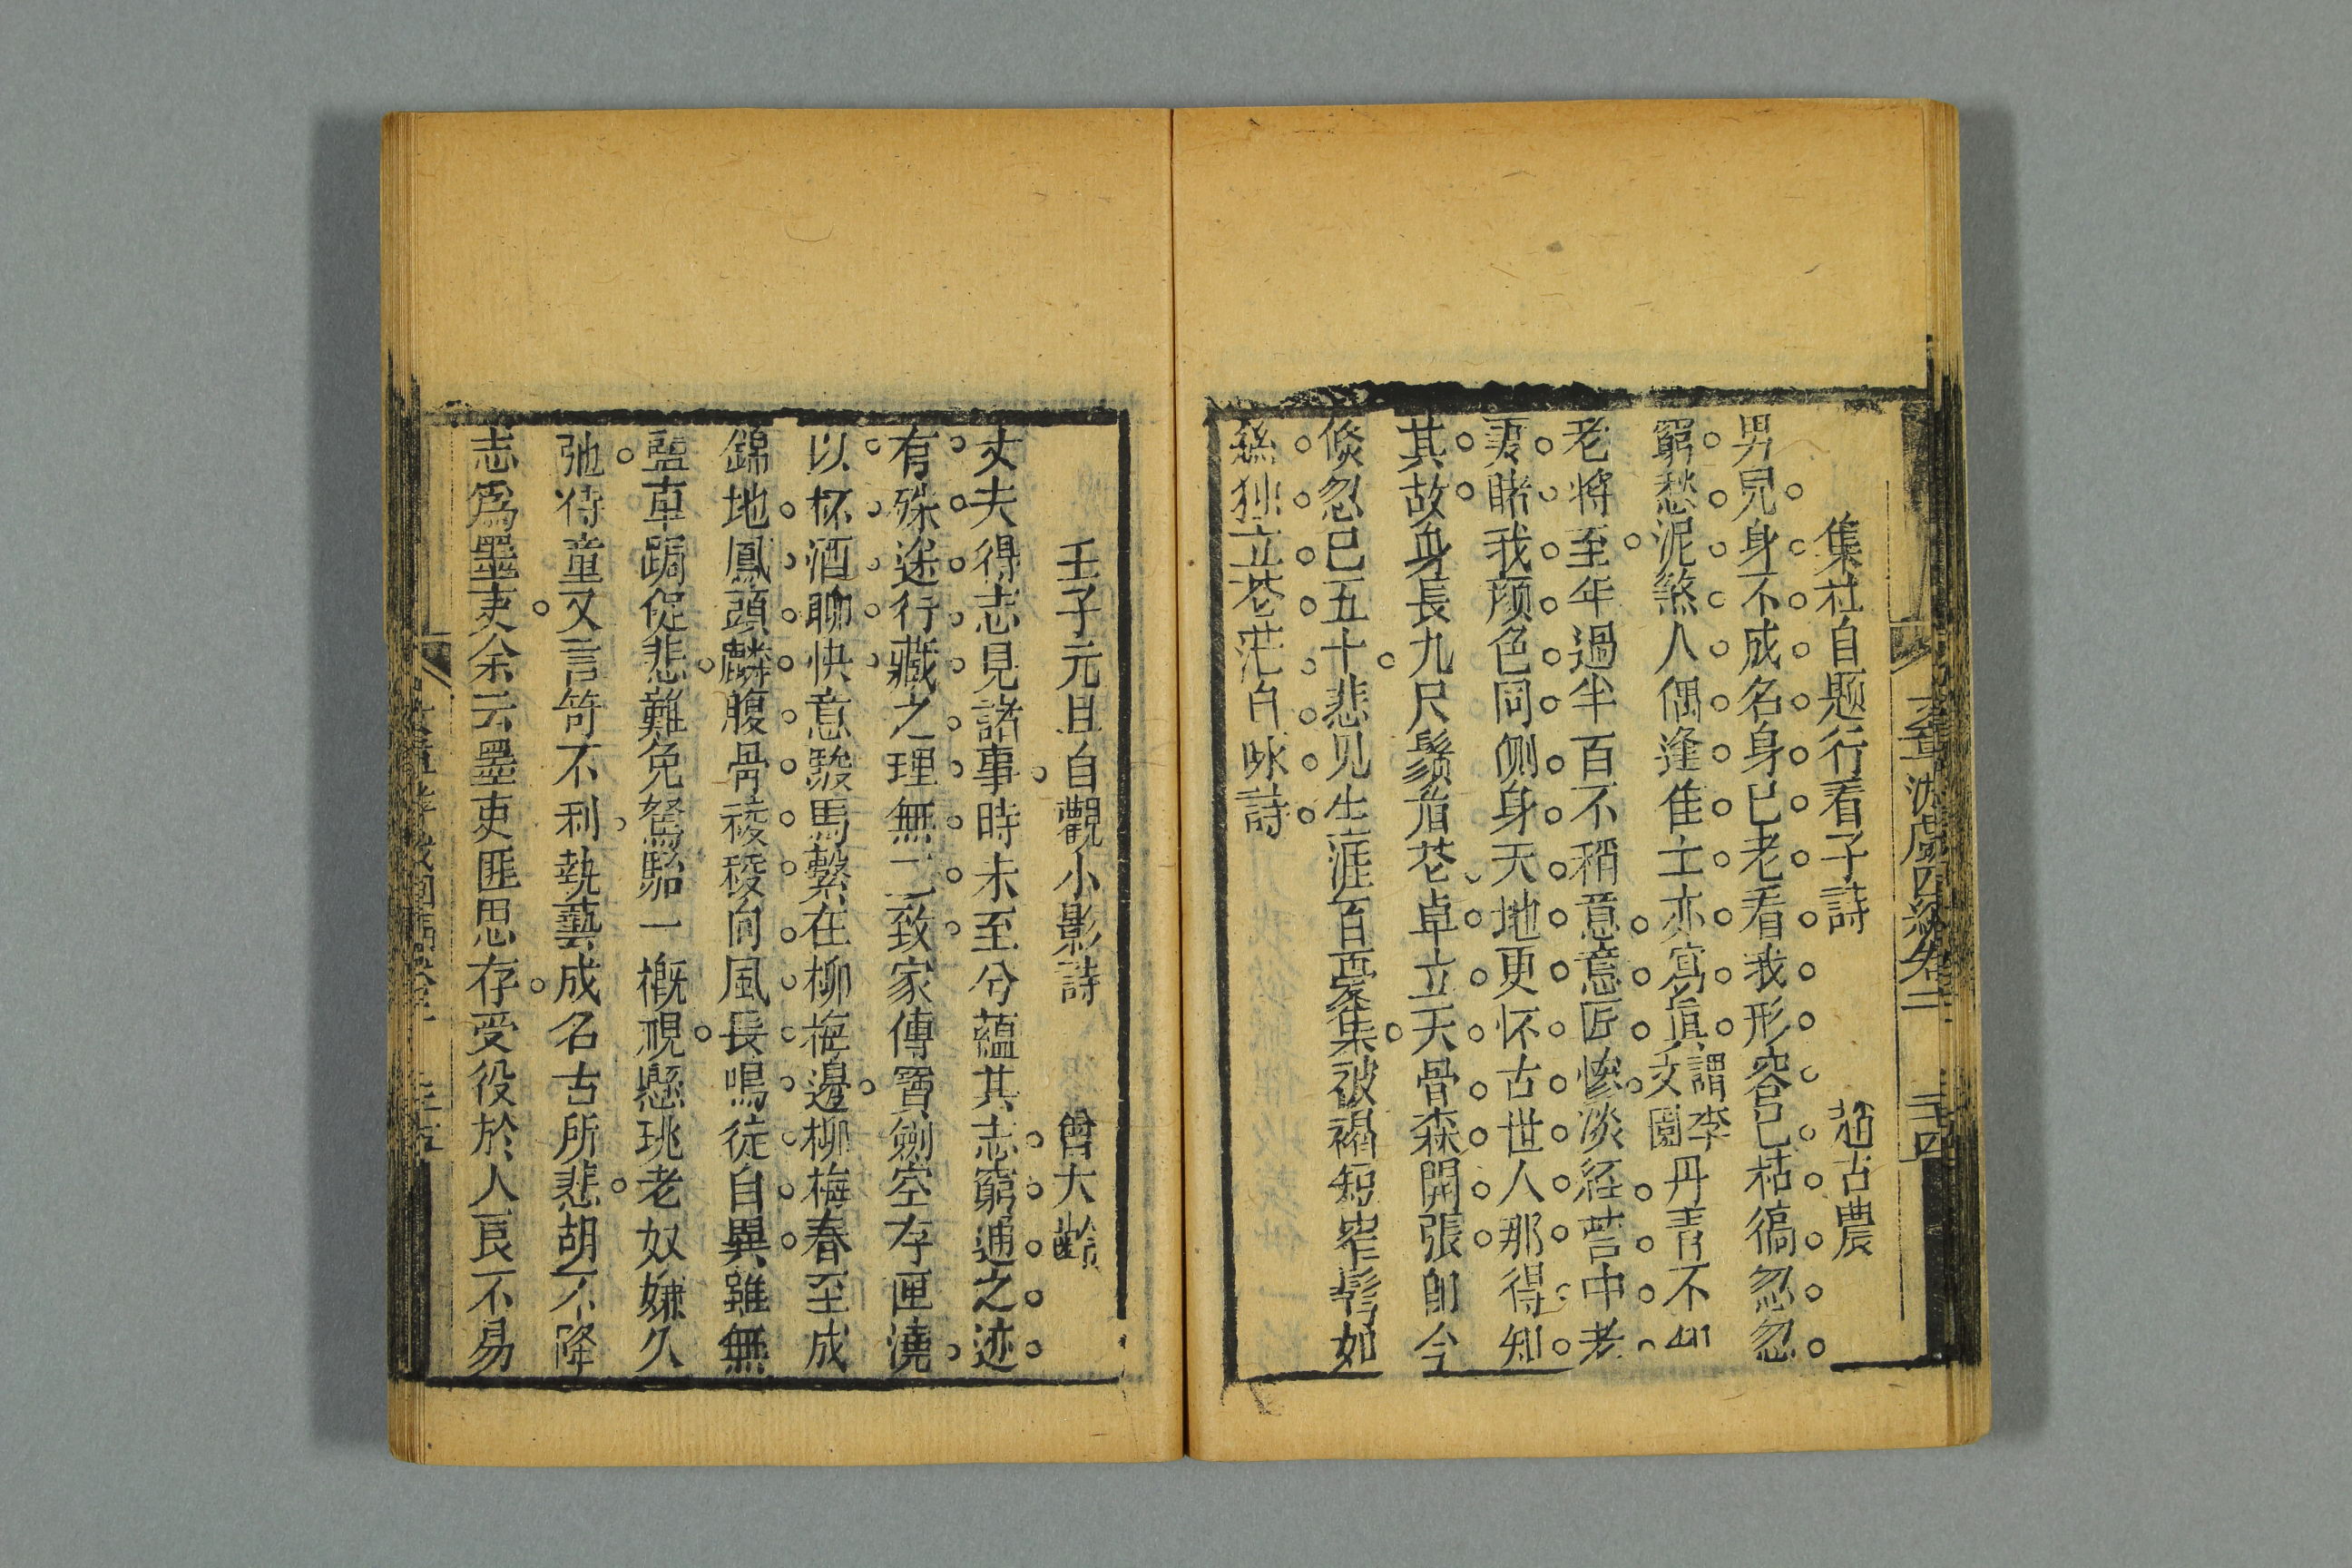 集社自题行看子詩　　　古農
男兒身不成名身已老看我形容已枯槁忽忽
窮愁泥煞人偶逢佳士亦寫眞謂李文園丹青不知
老將至年過半百不稱意意匠慘淡経营中老
妻睹我颜色同侧身天地更怀古世人那得知
其故身長九尺鬚眉苍卓立天骨森開張即今
倏忽已五十悲见生涯百憂集被褐短窄鬓如
絲独立苍茫自咏詩
壬子元旦自觀小影詩　　　曾大齡
丈夫得志見諸事時未至兮蘊其志窮通之迹
有殊途行藏之理無二致家傳寶劍空存匣澆
以杯酒聊快意駿馬繫在柳梅邊柳梅春至成
錦地鳳頭麟腹骨稜稜向風長鳴徒自異雖無
鹽車跼促悲難免駑駘一概視懸珧老奴嫌久
弛待童又言笴不利執藝成名古所悲胡不降
志爲墨吏余云墨吏匪思存受役於人良不易